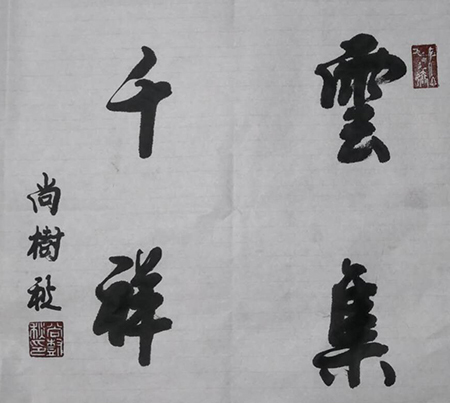 雲集
千祥
尚樹秋